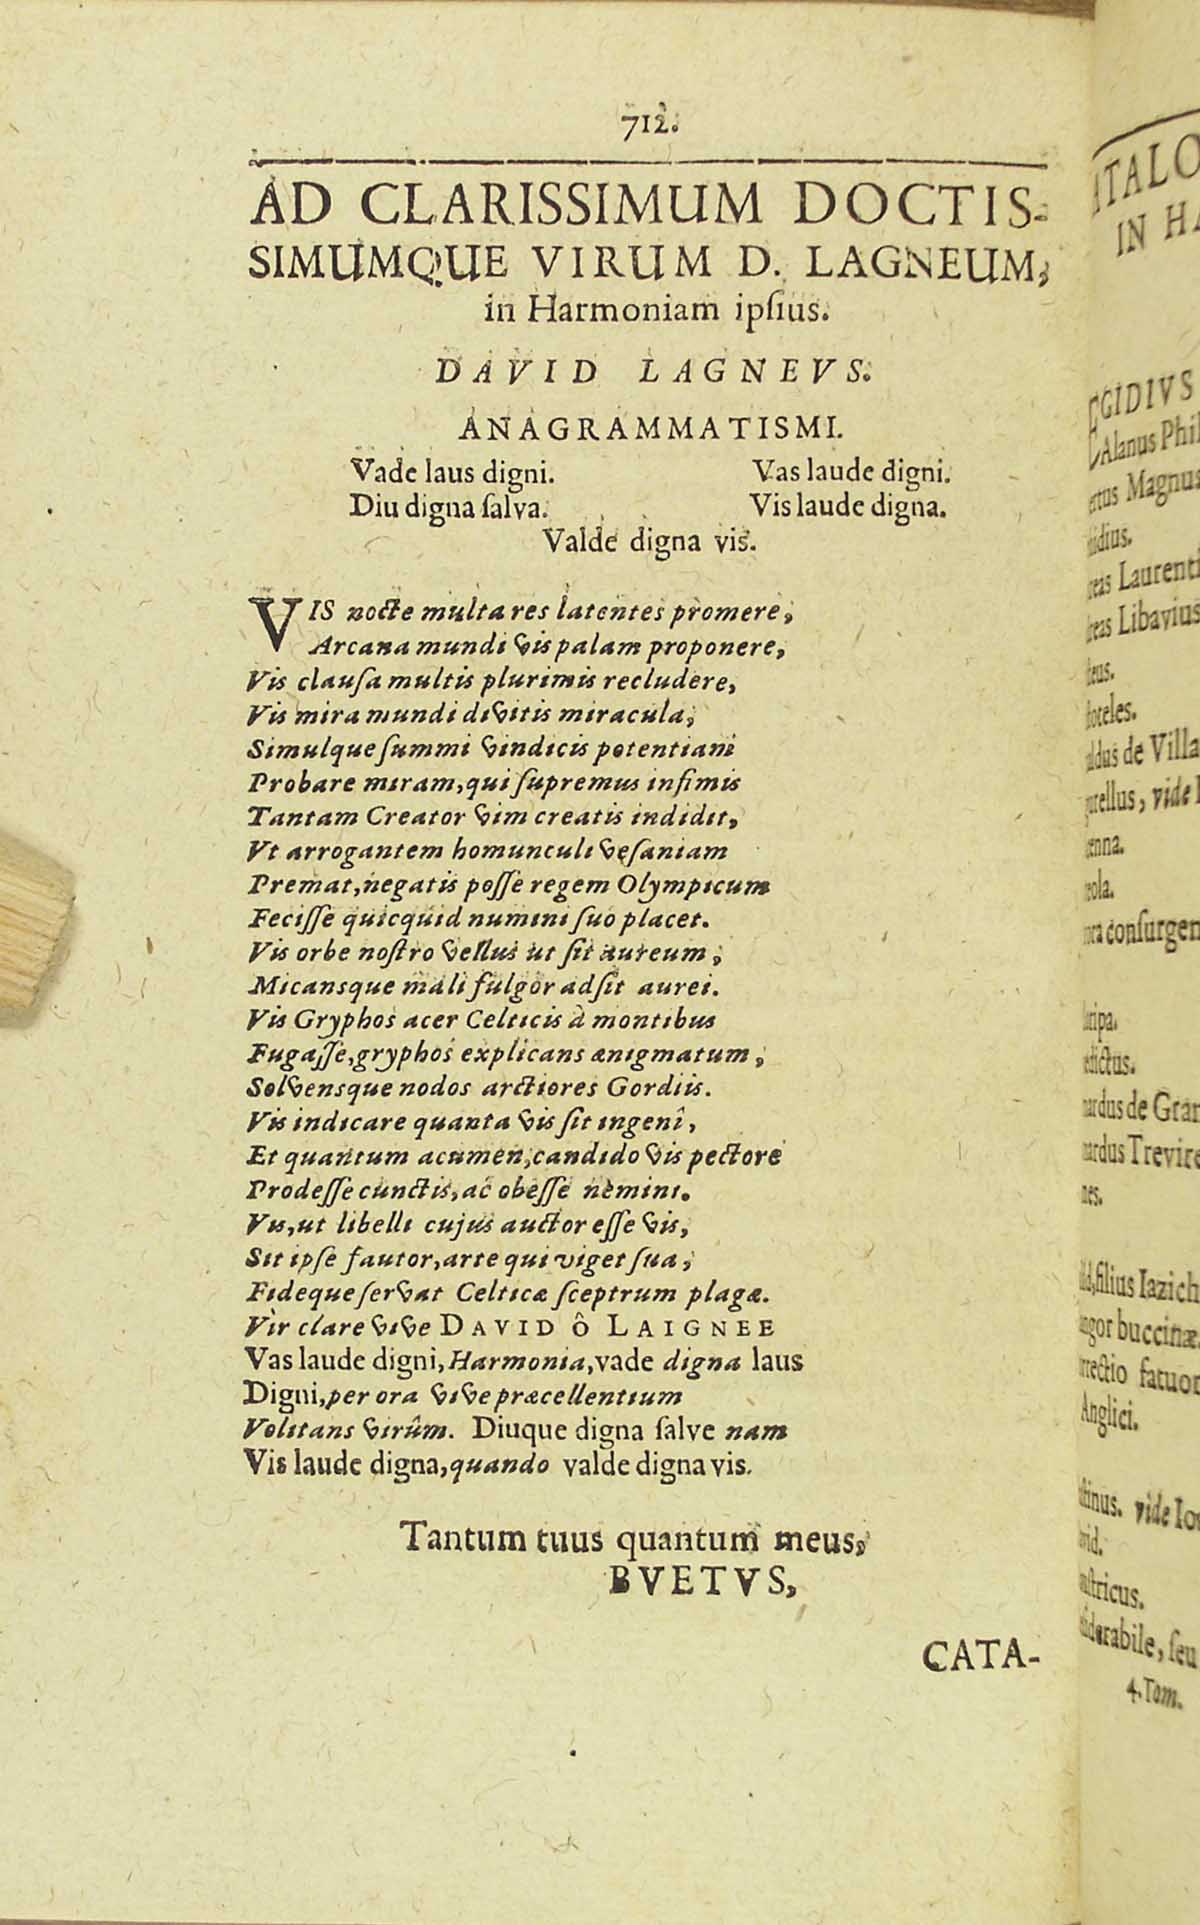 712.
AD CLARISSIMUM DOCTIS-
SIMUMQUE VIRUM D. LAGNEUM,
in Harmoniam ipſius.
DAVID LAGNEVS.
ANAGRAMMATISMI.
Vade laus digni. Vas laude digni.
Diu digna ſalva. Vis laude digna.
Valde digna vis.
VIS nocte multa res latentes promere,
Arcana mundi vis palam proponere,
Vis clauſa multis plurimis recludere,
Vis mira mundi divitis miracula,
Simulque ſummi vindicis potentiam
Probare miram, qui ſupremus infimis
Tantam Creator vim creatis indidit,
Vt arrogantem homunculi veſaniam
Premat, negatis poſſe regem Olympicum
Feciſſe quicquid numini ſuo placet.
Vis orbe noſtro vellus ut ſit aureum,
Micansque mali fulgor adſit aurei.
Vis Gryphos acer Celticis à montibus
Fugaſſe, gryphos explicans ænigmatum,
Solvensque nodos arctiores Gordiis.
Vis indicare quanta vis ſit ingenî,
Et quantum acumen, candido vis pectore
Prodeſſe cunctis, ac obeſſe nemini.
Vis, ut libelli cujus auctor eſſe vis,
Sit ipſe fautor, arte qui viget ſua,
Fideque ſervat Celticæ ſceptrum plagæ.
Vir clare vive DAVID ô LAIGNEE
Vas laude digni, Harmonia, vade digna laus
Digni, per ora vive præcellentium
Volitans virûm. Diuque digna ſalve nam
Vis laude digna, quando valde digna vis.
Tantum tuus quantum meus,
BVETVS,
CATA-
IN
GIDIVS
Alanus
Magnus
Laurenti
Libavius
de Villa
vide
conſurgen
de Gran
filius Iazich
buccinæ
fatuor
Anglici.
vide
ſeu
4. Tom.